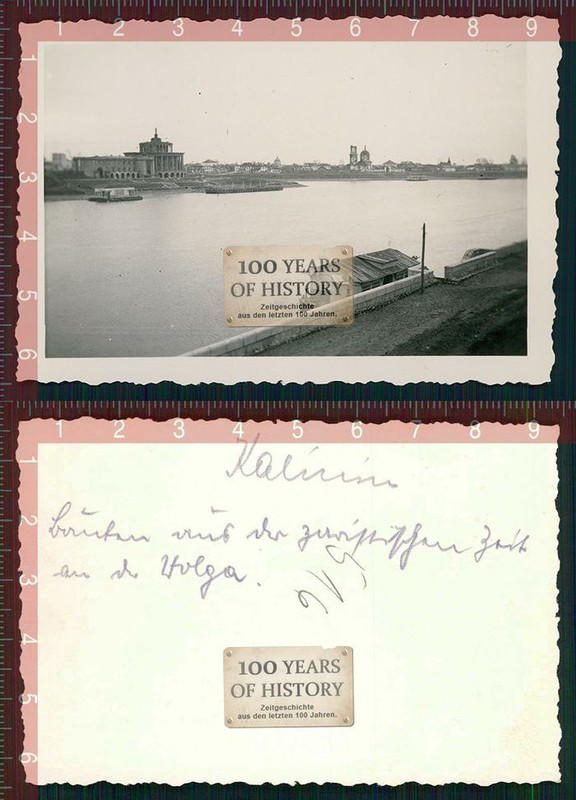 1 2 3 4 5 6 7 8 9
1
2
3
4
5
6
100 YEARS
OF HISTORY
Zeitgeschichte
aus den letzten 100 Jahren.
1 2 3 4 5 6 7 8 9
2
3
4
5
6
Kalinin
Bauten aus der zaristischen Zeit
an der Wolga.
100 YEARS
OF HISTORY
Zeitgeschichte
aus den letzten 100 Jahren.